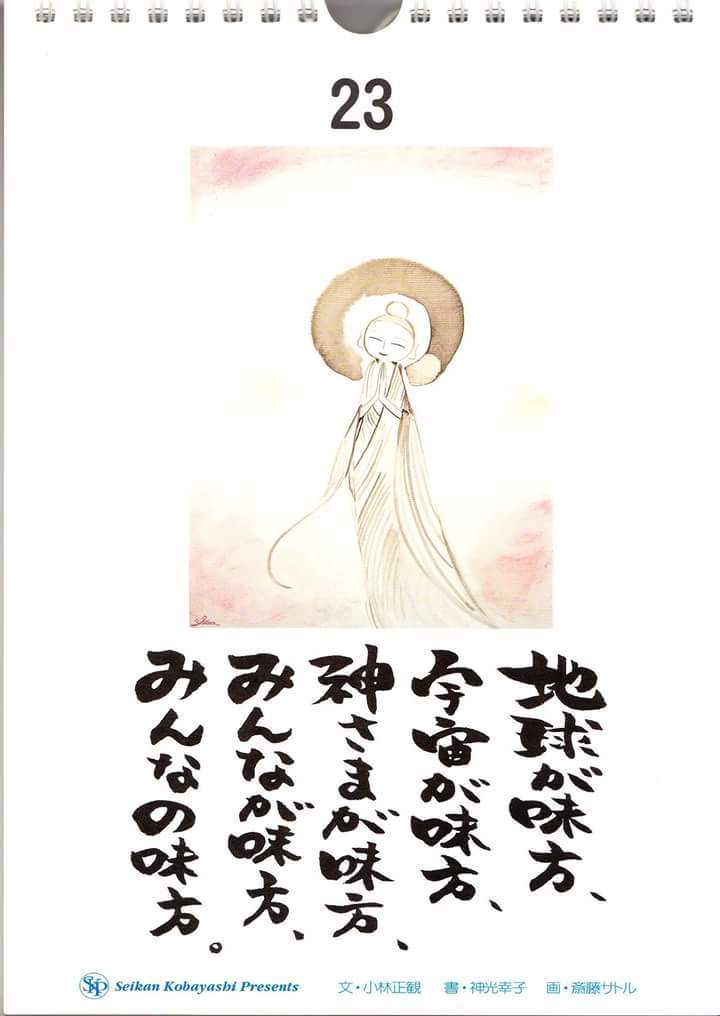 23
地球が味方、
宇宙が味方、
神さまが味方、
みんなが味方、
みんなの味方。
SKP Seikan Kobayashi Presents 文・小林正観 書・神光幸子 画・斎藤サトル